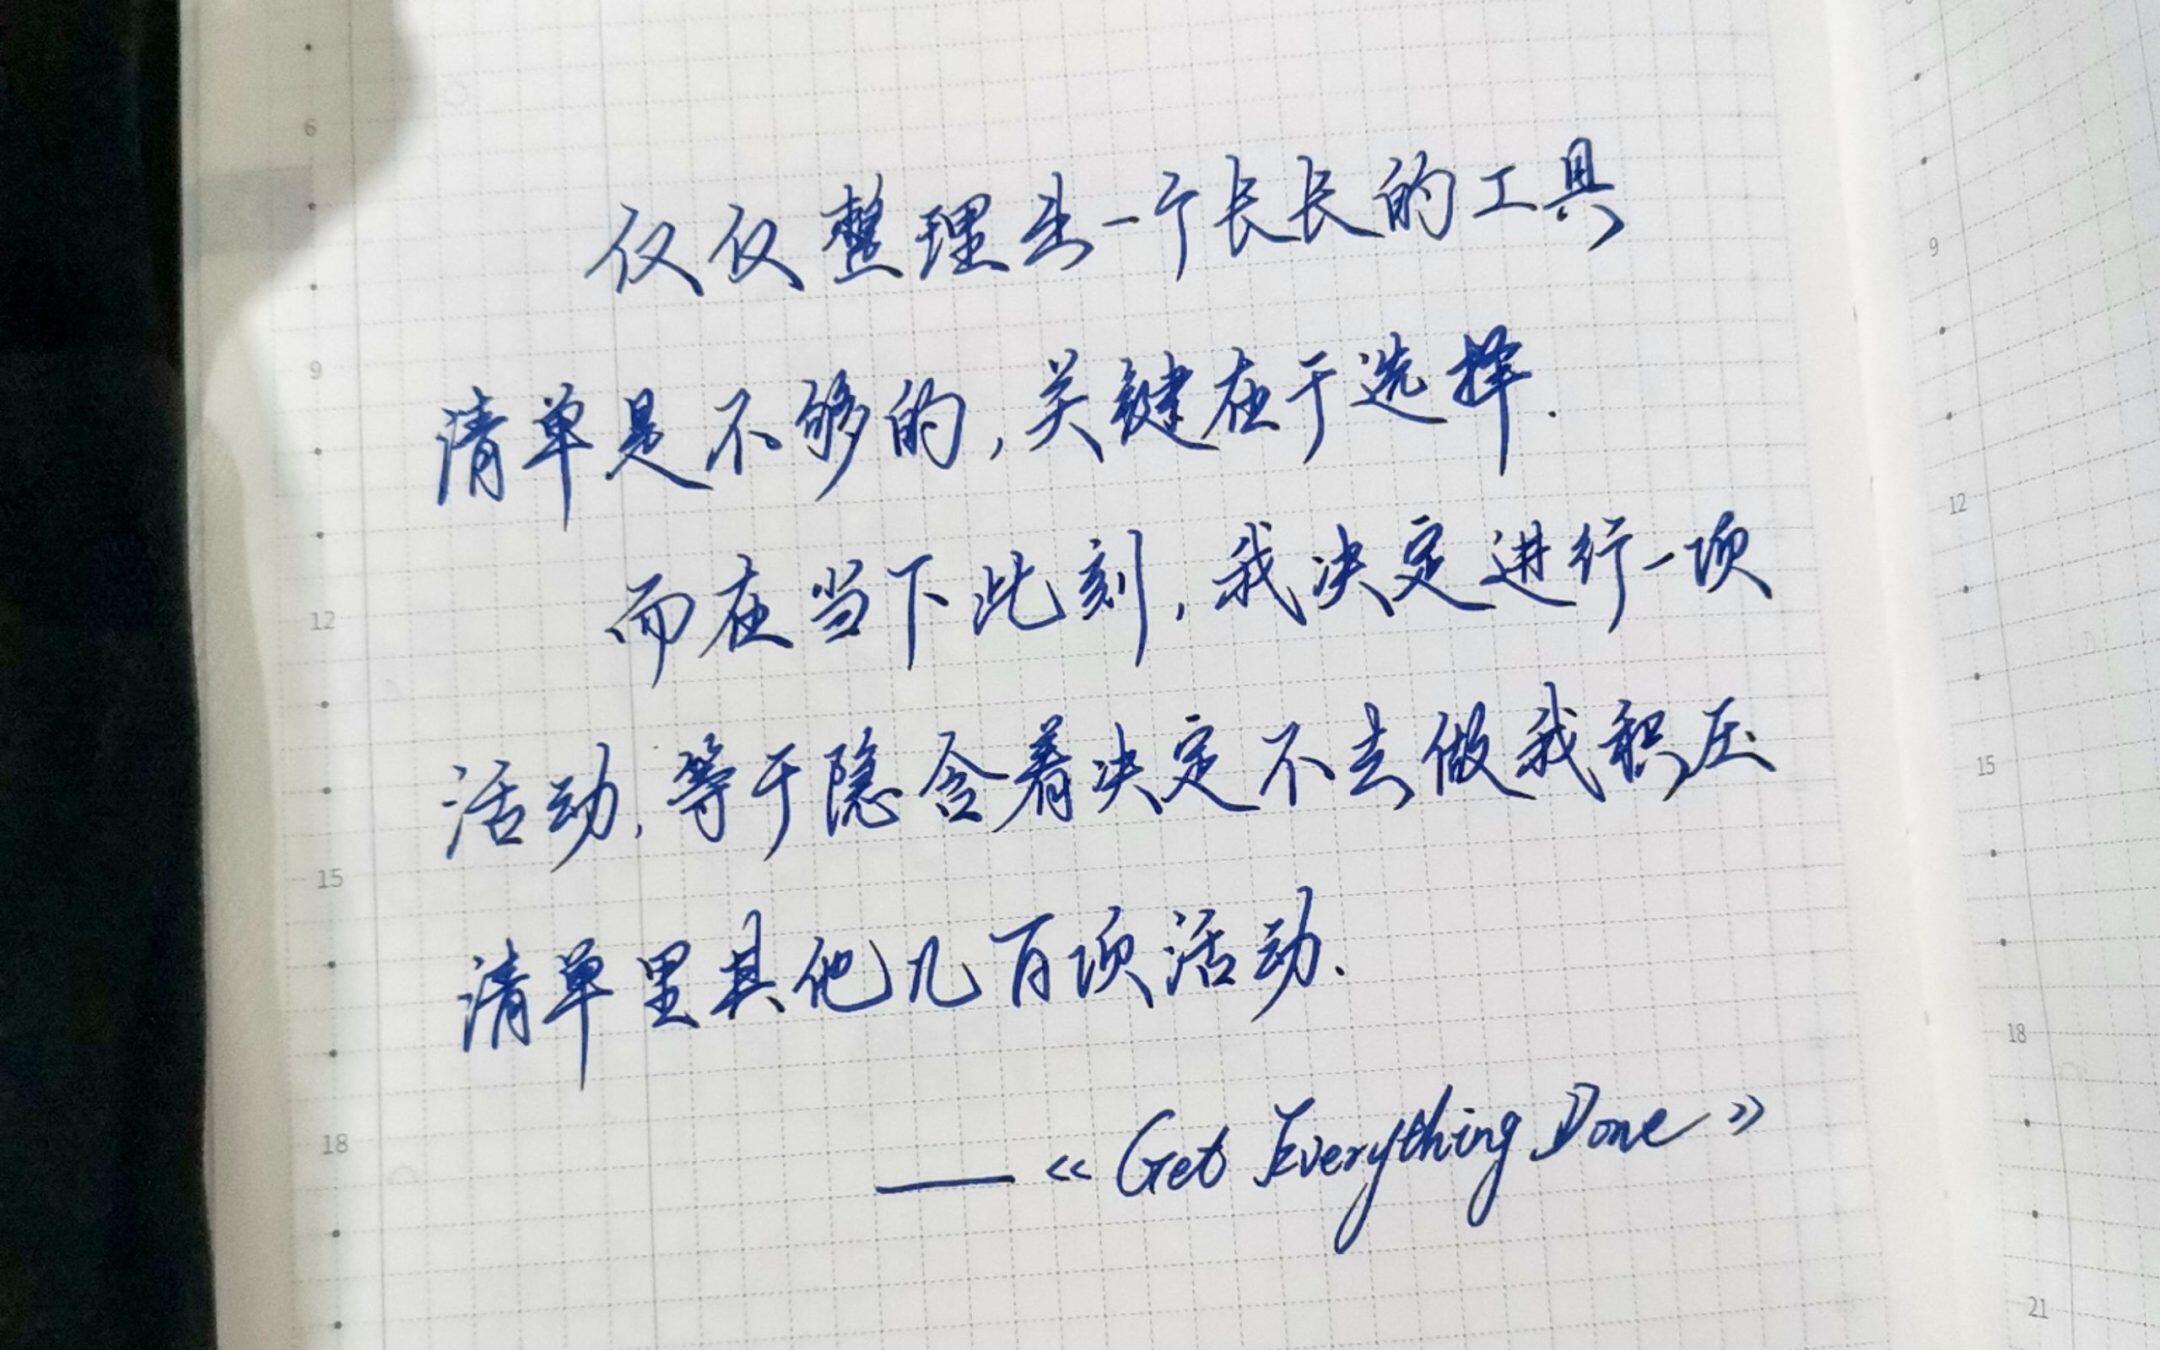 6
9
12
15
18
仅仅整理出一个长长的工具
清单是不够的,关键在于选择.
而在当下此刻,我决定进行一项
活动,等于隐含着决定不去做我积压
清单里其他几百项活动.
——《Get Everything Done》
9
12
15
18
21